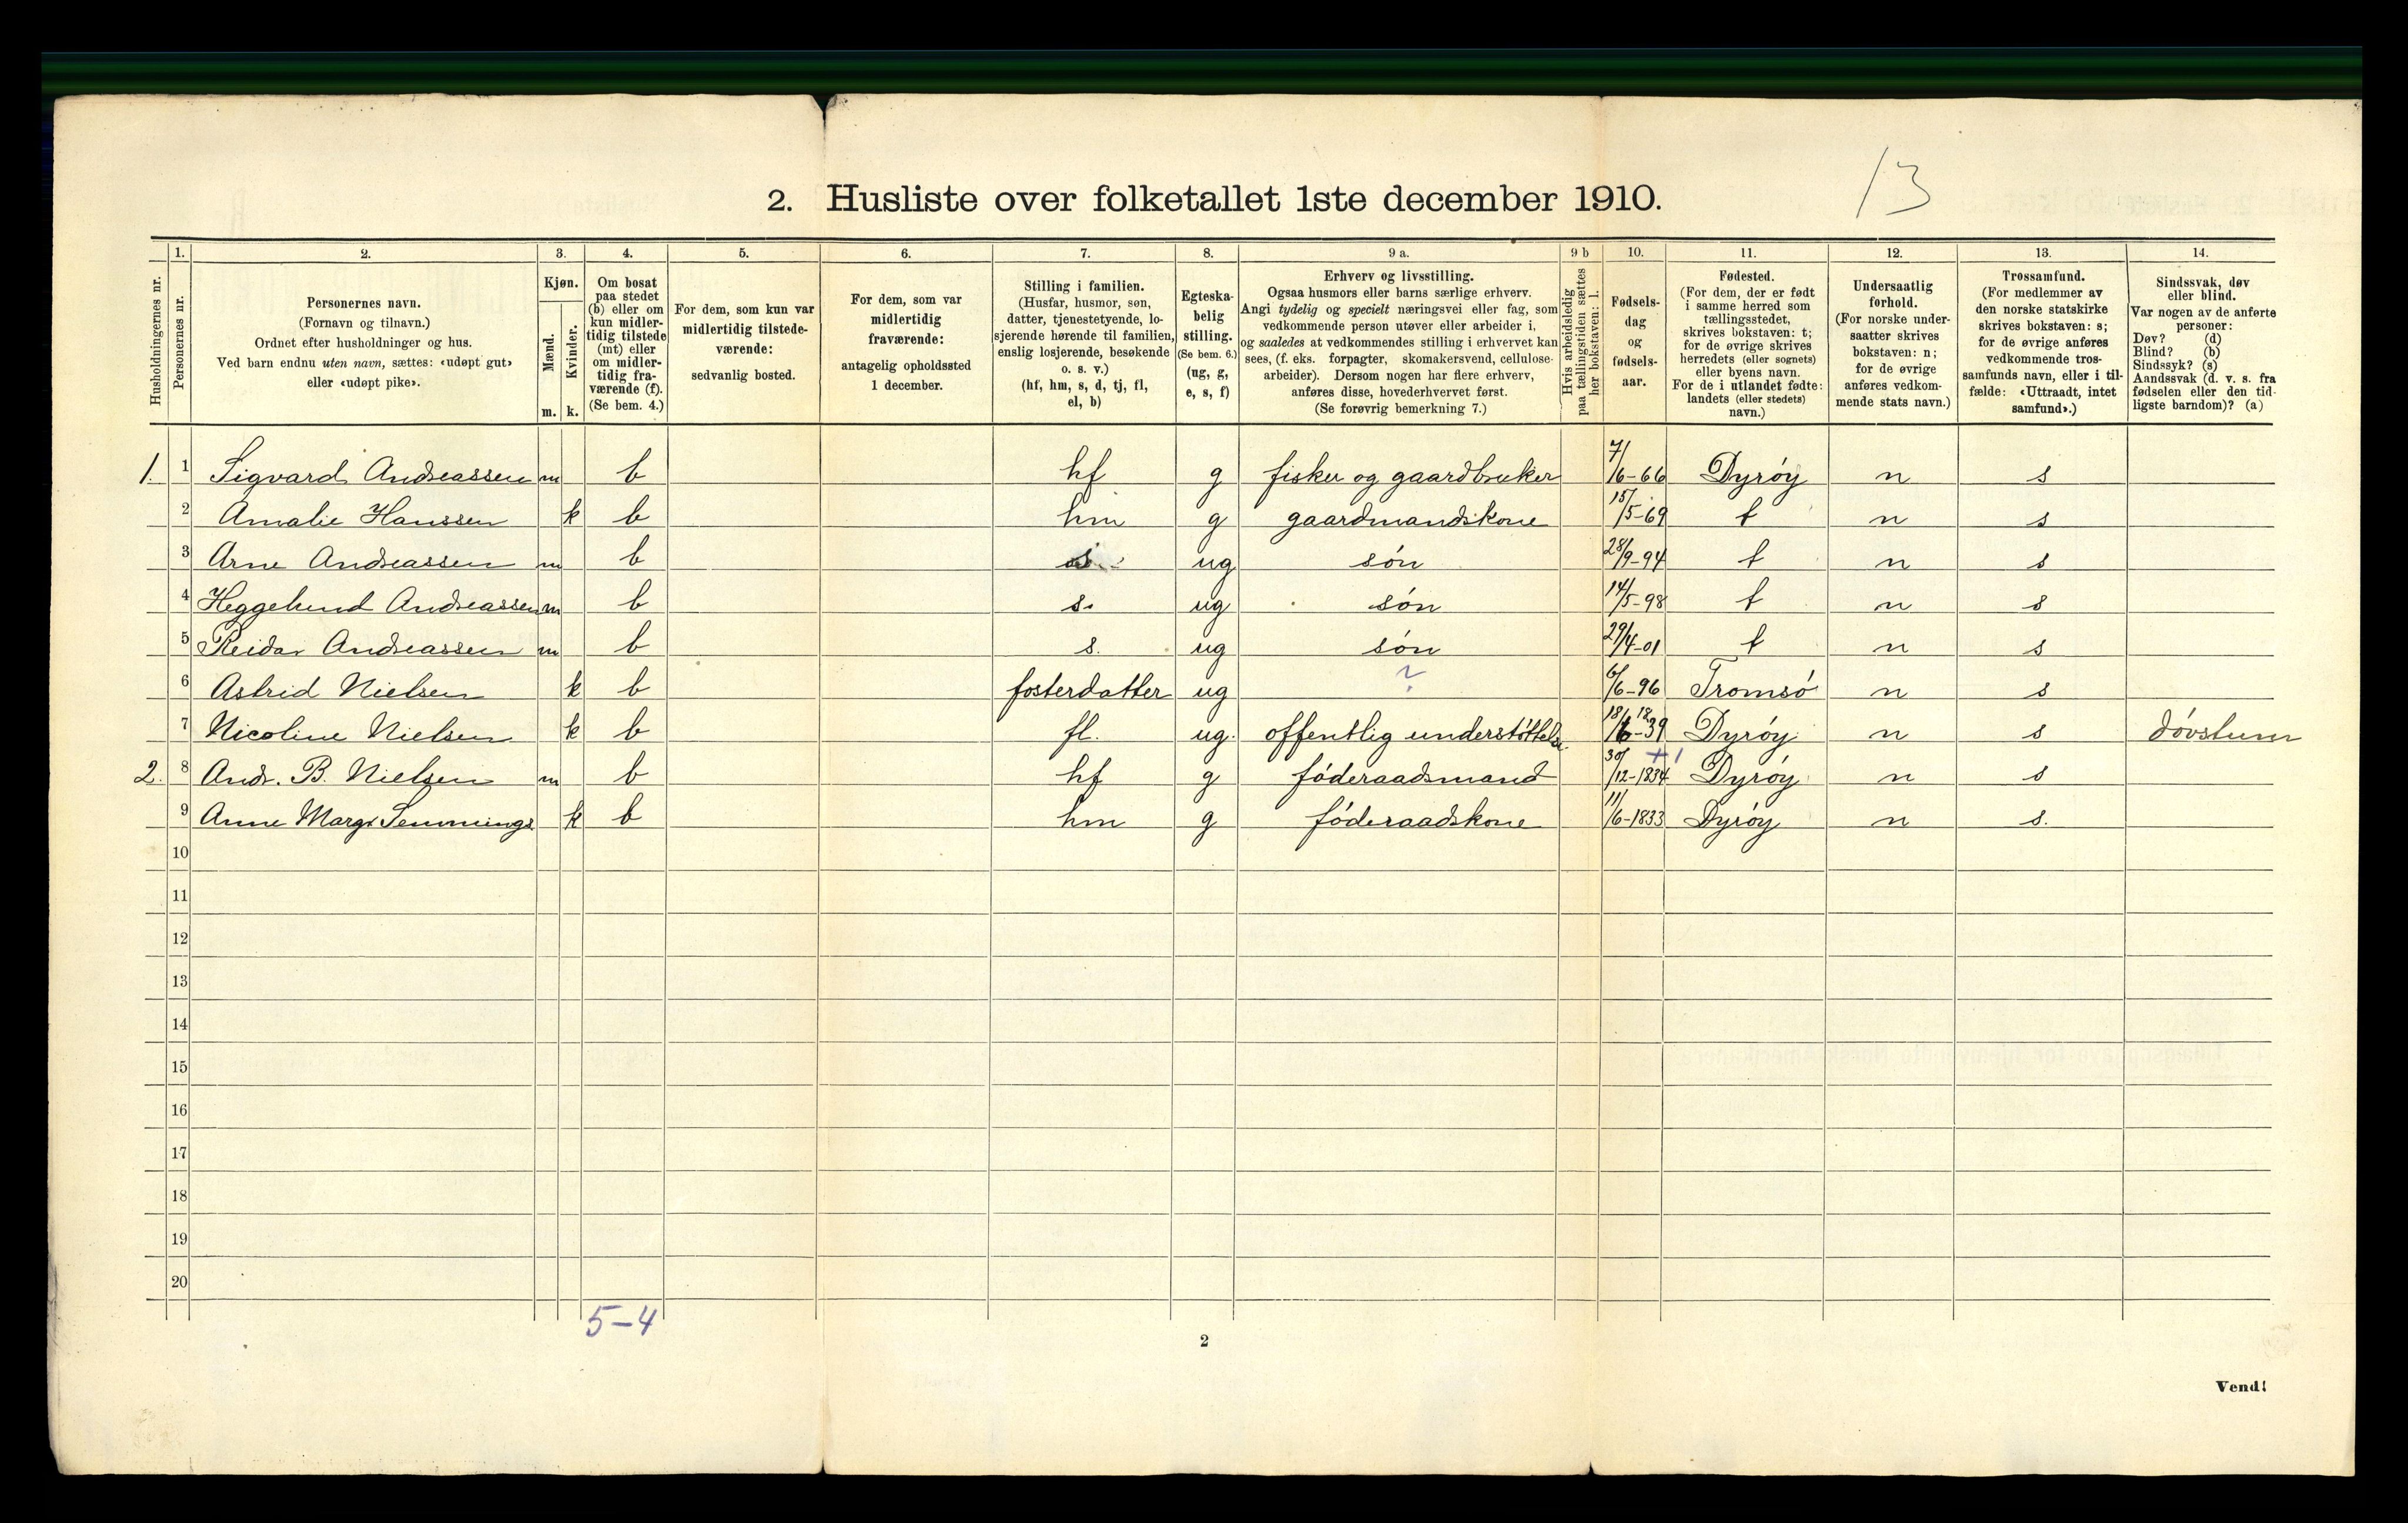 13
2. Husliste over folketallet 1ste december 1910.
Husholdningernes nr.
1. Personernes nr.
2. Personernes navn.
(Fornavn og tilnavn.)
Ordnet efter husholdninger og hus.
Ved barn endnu uten navn, sættes: «udøpt gut»
eller «udøpt pike».
3. Kjøn.
Mænd. m.
Kvinder. k.
4. Om bosat
paa stedet
(b) eller om
kun midler-
tidig tilstede
(mt) eller
om midler-
tidig fra-
værende (f).
(Se bem. 4.)
5. For dem, som kun var
midlertidig tilstede-
værende:
sedvanlig bosted.
6. For dem, som var
midlertidig
fraværende:
antagelig opholdssted
1 december.
7. Stilling i familien.
(Husfar, husmor, søn,
datter, tjenestetyende, lo-
sjerende hørende til familien,
enslig losjerende, besøkende
o. s. v.)
(hf, hm, s, d, tj, fl,
el, b)
8. Egteska-
belig
stilling.
(Se bem. 6.)
(ug, g,
e, s, f)
9 a. Erhverv og livsstilling.
Ogsaa husmors eller barns særlige erhverv.
Angi tydelig og specielt næringsvei eller fag, som
vedkommende person utøver eller arbeider i,
og saaledes at vedkommendes stilling i erhvervet kan
sees, (f. eks. forpagter, skomakersvend, cellulose-
arbeider). Dersom nogen har flere erhverv,
anføres disse, hovederhvervet først.
(Se forøvrig bemerkning 7.)
9 b Hvis arbeidsledig
paa tællingstiden sættes
her bokstaven: l.
10. Fødsels-
dag
og
fødsels-
aar.
11. Fødested.
(For dem, der er født
i samme herred som
tællingsstedet,
skrives bokstaven: t;
for de øvrige skrives
herredets (eller sognets)
eller byens navn.
For de i utlandet fødte:
landets (eller stedets)
navn.)
12. Undersaatlig
forhold.
(For norske under-
saatter skrives
bokstaven: n;
for de øvrige
anføres vedkom-
mende stats navn.)
13. Trossamfund.
(For medlemmer av
den norske statskirke
skrives bokstaven: s;
for de øvrige anføres
vedkommende tros-
samfunds navn, eller i til-
fælde: «Uttraadt, intet
samfund».)
14. Sindssvak, døv
eller blind.
Var nogen av de anførte
personer:
Døv? (d)
Blind? (b)
Sindssyk? (s)
Aandssvak (d. v. s. fra
fødselen eller den tid-
ligste barndom)? (a)
1. 1 Sigvard Andreassen m b hf g fisker og gaardbruker 7/6-66 Dyrøy n s
2 Amalie Hanssen k b hm g gaardmandskone 15/5-69 t n s
3 Arne Andreassen m b s ug søn 28/9-94 t n s
4 Heggelund Andreassen m b s. ug søn 14/5-98 t n s
5 Reidar Andreassen m b s. ug søn 29/4-01 t n s
6 Astrid Nielsen k b fosterdatter ug ? 6/6-96 Tromsø n s
7 Nicoline Nielsen k b fl. ug. offentlig understøttelse. 18/6 18-39 Dyrøy n s døvstum
+1
2. 8 Andr. B. Nielsen m b hf g føderaadsmand 30/12-1834 Dyrøy n s
9 Anne Margr Semmings k b hm g føderaadskone 11/6-1833 Dyrøy n s.
10
11
12
13
14
15
16
17
18
19
20
5-4
2
Vend!